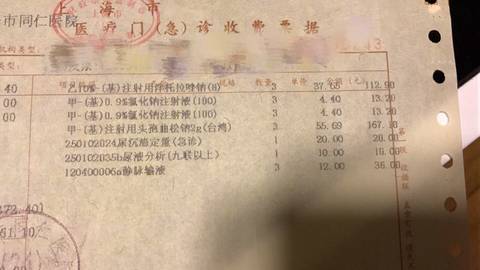 上 海 市
市同仁医院
医疗门(急)诊收费票据
机构类型:
数量 单价 金额(元)
(基)注射用泮托拉唑钠(8) 3 37.65 112.96
00 甲-(基)0.9%氯化钠注射液(100) 3 4.40 13.20
00 甲-(基)0.9%氯化钠注射液(100) 3 4.40 13.20
甲-(基)注射用头孢曲松钠2g(台湾) 3 55.69 167.
250102024尿沉渣定量(急诊) 1 20.00 20.00
250102035b尿液分析(九联以上) 1 10.00 10.00
120400006a静脉输液 3 12.00 36.00
372.40)
61.10